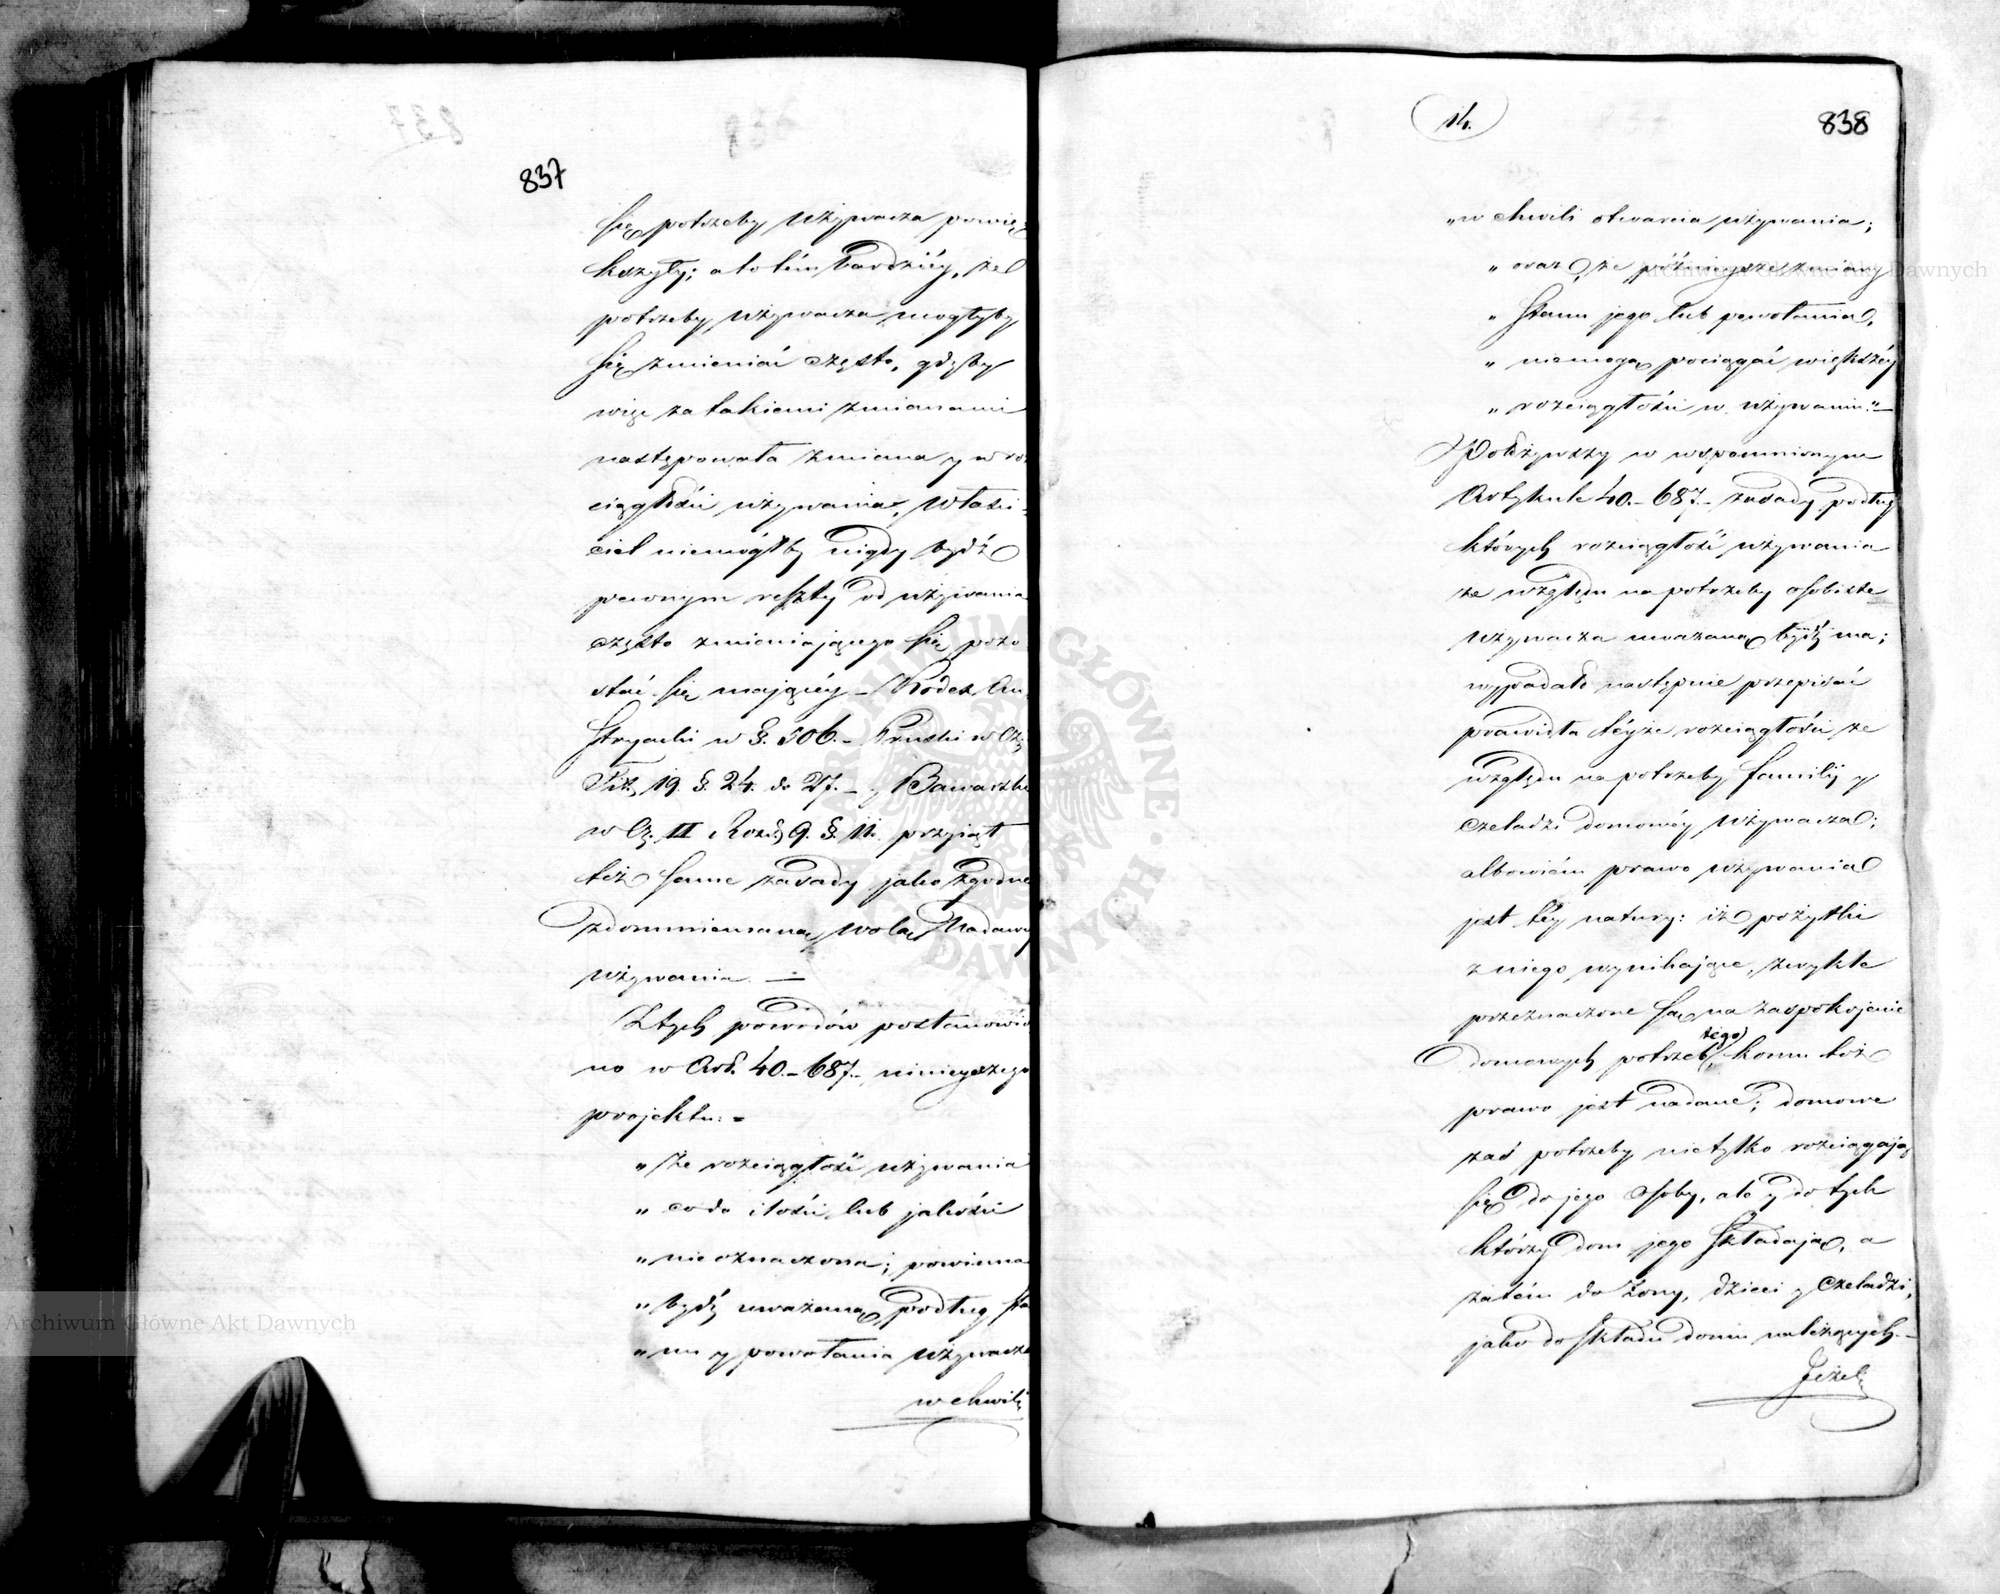 837
się potrzeby Używacza powię¬
kszyły; a to tém bardziéy, że
potrzeby Używacza mogłyby
się zmieniać często, gdyby
więc za takiemi zmianami
następowała zmiana y w roz
ciągłości używania, właści¬
ciel niemógłby nigdy bydź
pewnym reszty od używania
często zmieniającego się pozo
stać się maiącéy. – Kodex Au¬
stryacki w §. 506. – Pruski w Cz.
Tit. 19. §. 24. do 27. – y Bawarski
w Cz. II Rozd. 9. §. 11. przyiął
też same zasady jako zgodne
z domniemaną wolą Nadawcy
używania. —
Z tych powodów postanowio
no w Art. 40. – 687. – ninieyszego
projektu: =
„ Że rozciągłość używania
„ co do ilości lub jakości
„ nieoznaczona; powinna
„ bydź uważaną podług sta
„ nu y powołania Używacza
w chwili
14.
838
„w chwili otwarcia używania;
„ oraz, że późnieysze zmiany
„ Stanu jego lub powołania,
„ niemogą pociągać większéy
„ rozciągłości w używaniu." –
Położywszy w wspomnionym
Artykule 40. – 687. – zasady podług
których rozciągłość używania
ze względu na potrzeby osobiste
Używacza uważaną bydź ma;
wypadało następnie przepisać
prawidła téyże rozciągłości ze
względu na potrzeby familij y
czeladzi domowéy Używacza;
albowiém prawo używania
jest téy natury: iż pożytki
z niego wynikające, zwykle
przeznaczone są na zaspokojenie
domowych potrzeb tego, komu toż
prawo jest nadane; domowe
zaś potrzeby nie tylko rozciągają
się do jego osoby, ale y do tych
którzy dom jego składają, a
zatém do Żony, dzieci y Czeladzi,
jako do składu domu należących. –
Jeżeli
Archiwum Główne Akt Dawnych
Archiwum Główne Akt Dawnych
ARCHIWUM GŁÓWNE AKT DAWNYCH